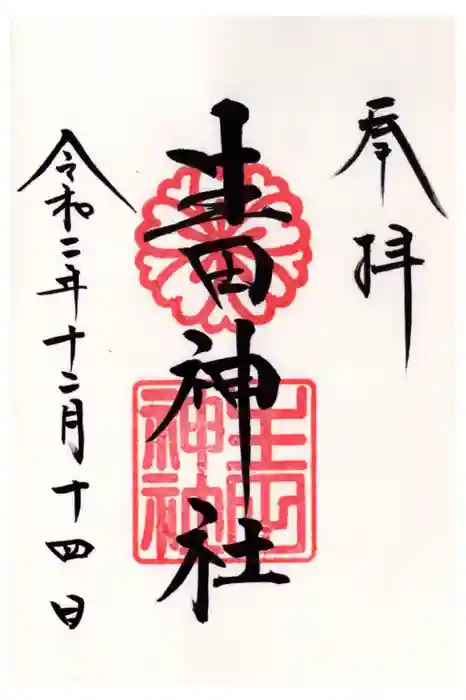 奉拝
生田神社
生田
神社
令和二年十二月十四日